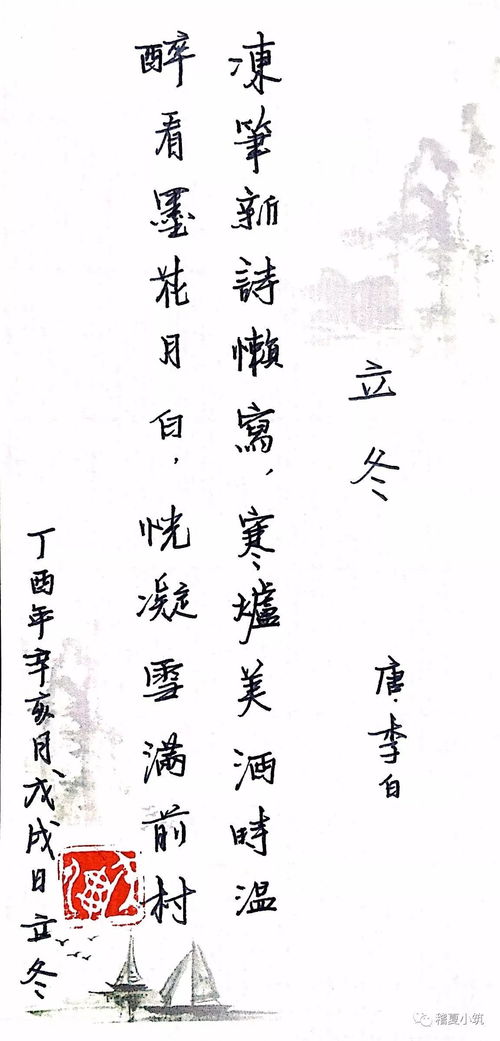 立冬
唐·李白
凍筆新詩懶寫,寒壚美酒時溫
醉看墨花月白,恍凝雪滿前村
丁酉年辛亥月、戊戌日立冬
稽夏小筑